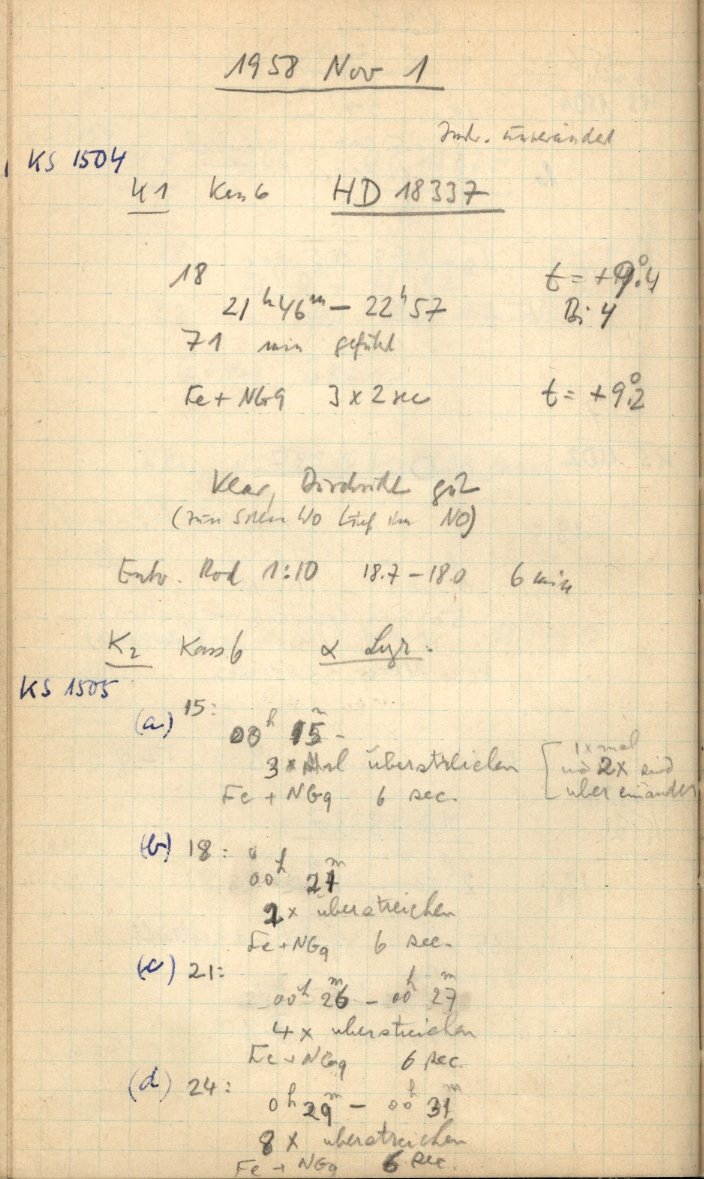 1958 Nov 1
Instr. unverändet
KS 1504
K1 Kass 6 HD 18337
18 t = +9°.4
21 h 46 m – 22 h 57 Bi 4
71 min geführt
Fe + NG9 3 x 2 sec t = +9°.2
Klar, Durchsicht gut
(zum tief im NO)
Entw. Rod 1:10 18.7 – 18.0 6 min
K2 Kass 6 α Lyr.
KS 1505
(a) 15:
00 h 15 m –
3 x Mal überstrichen [ 1 x mal
und 2x sind
über einander
Fe + NG9 6 sec.
(b) 18:
00 h 21 m
2 x überstreichen
Fe + NG9 6 sec.
(c) 21:
00 h 26 m – 00 h 27 m
4 x überstreichen
Fe + NG9 6 sec.
(d) 24:
0 h 29 m – 00 h 31 m
8 x überstreichen
Fe + NG9 6 sec.